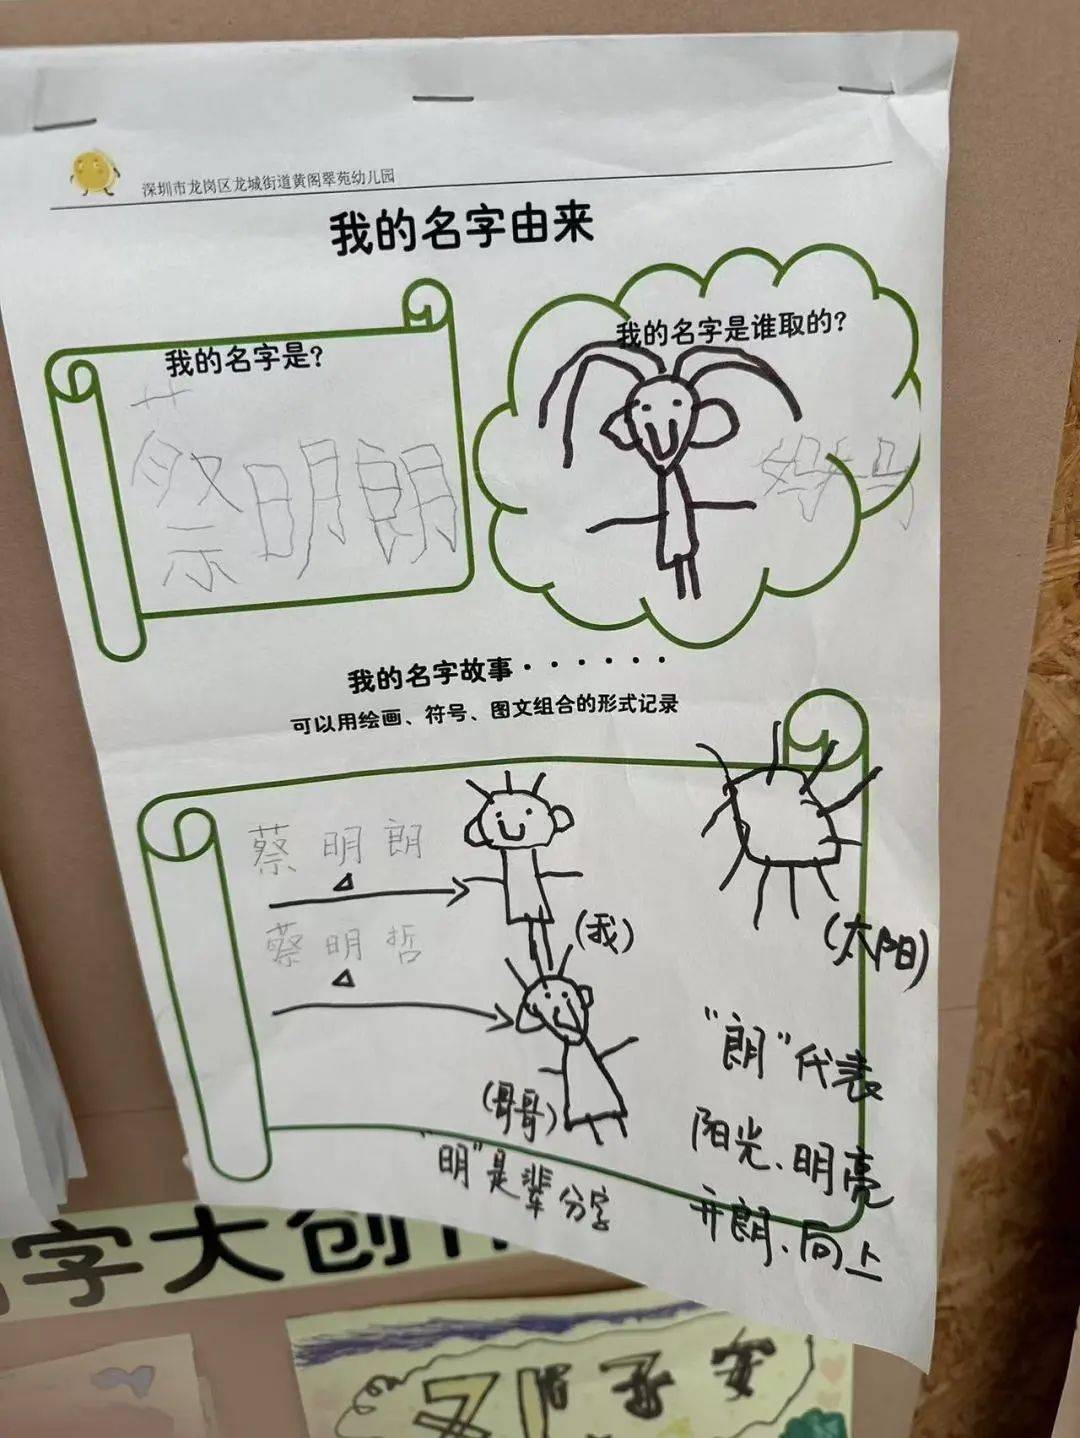 深圳市龙岗区龙城街道黄阁翠苑幼儿园
我的名字由来
我的名字是?
蔡明朗
我的名字是谁取的?
妈妈
我的名字故事······
可以用绘画、符号、图文组合的形式记录
蔡明朗
(我)
蔡明哲
(哥哥)
"明"是辈分字
(太阳)
"朗"代表
阳光、明亮
开朗、向上
字大创作